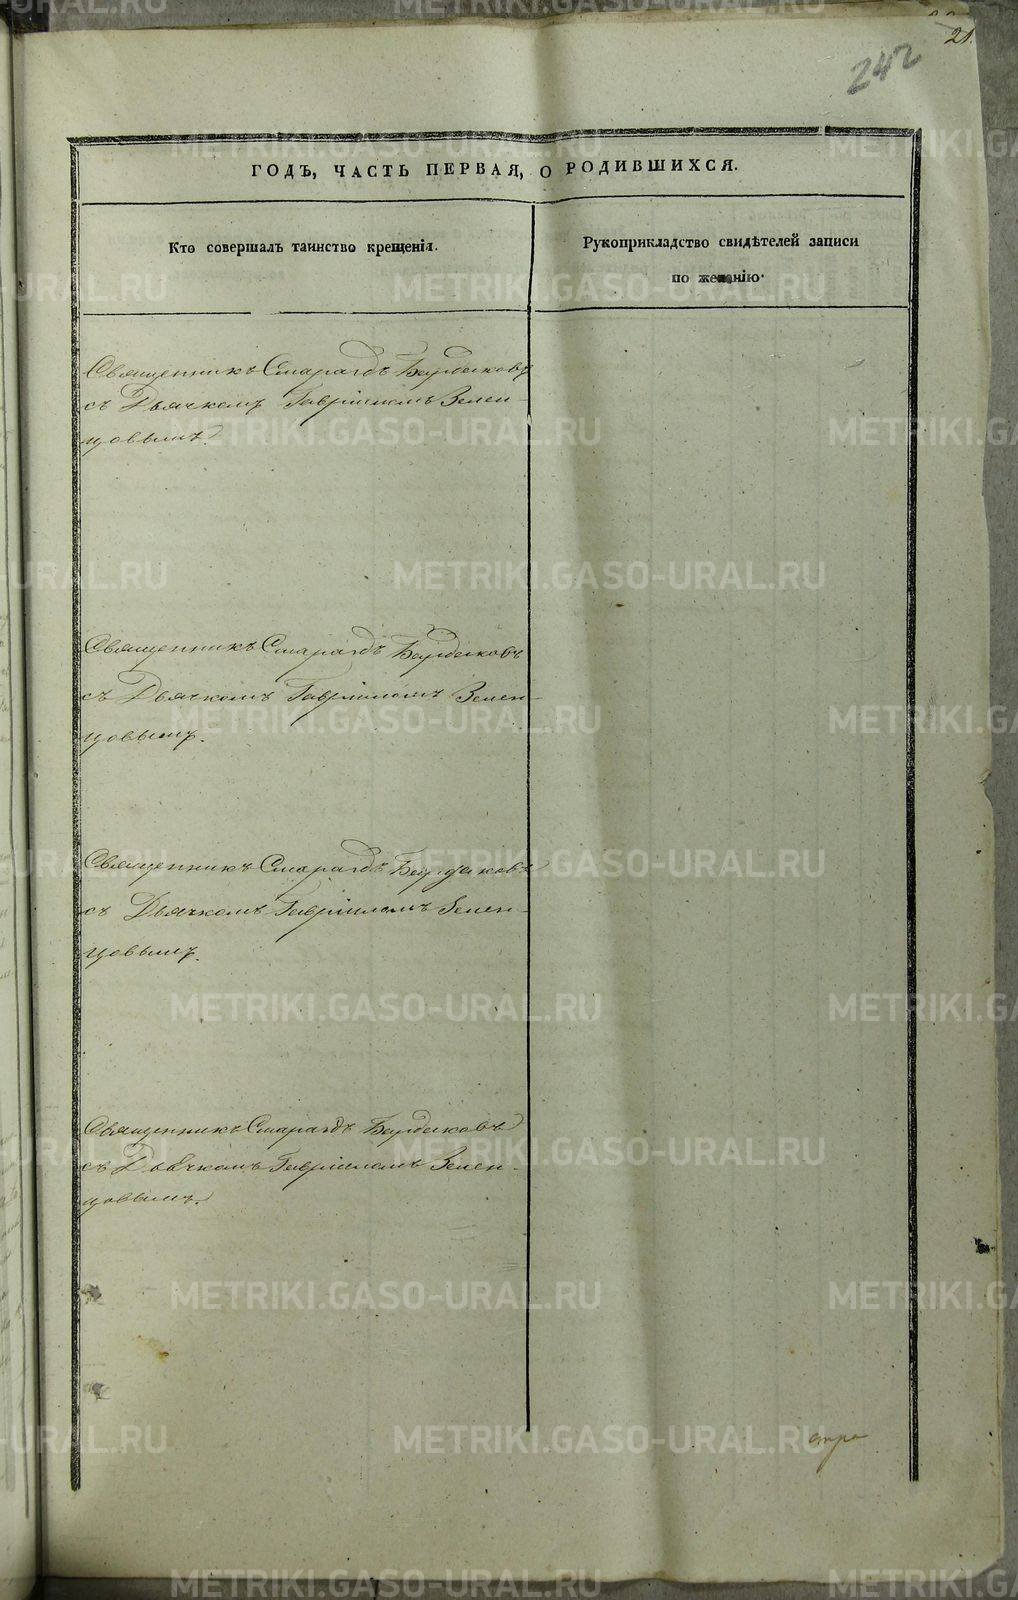 21.
242
ГОДЪ, ЧАСТЬ ПЕРВАЯ, О РОДИВШИХСЯ.
Кто совершалъ таинство крещенія.
Рукоприкладство свидѣтелей записи
по желанію.
Священникъ Смарагдъ Бурдаковъ
съ Дьячкомъ Гавріиломъ Зелен-
цовымъ.
Священникъ Смарагдъ Бурдаковъ
съ Дьячкомъ Гавріиломъ Зелен-
цовымъ.
Священникъ Смарагдъ Бурдаковъ
съ Дьячкомъ Гавріиломъ Зелен-
цовымъ.
Священникъ Смарагдъ Бурдаковъ
съ Дьячкомъ Гавріиломъ Зелен-
цовымъ.
METRIKI.GASO-URAL.RU